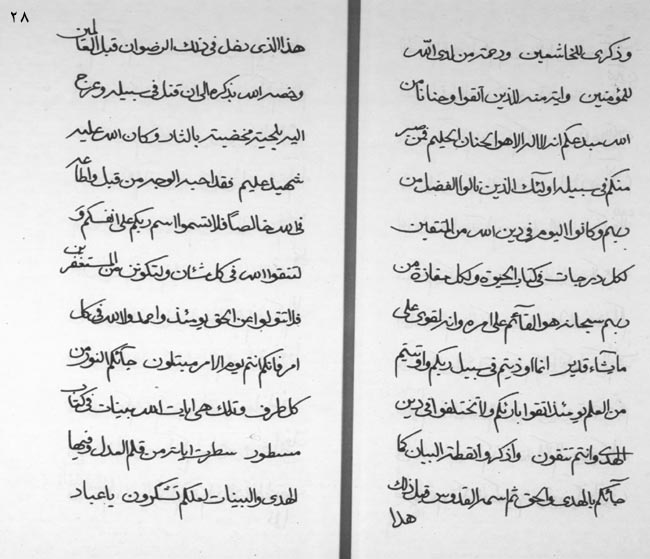 وذكرى للخاشعين ورحمة من لدى الله
للمؤمنين واية منه للذين اتقوا وحنانا من
الله مبدعكم انه لا اله الا هو الحنان الحليم فمن صبر
منكم في سبيله اولئك الذين نالوا الفضل من
ربهم وكانوا اليوم في دين الله من المتقين
لكل درجات في كتاب الحيوة ولكل مفازة من
ربهم سبحانه هو القائم على امره وانه لقوى على
ما يشاء قدير انما اوذيتم في سبيل ربكم واوتيتم
من العلم يومئذ اتقوا بارئكم ولا تختلفوا في دين
الهدى وانتم تتقون واذكروا نقطة البيان كما
جائكم بالهدى والحق ثم اسمه القدوس من قبل ذلك
هذا
٢٨
هذا الذى دخل في ذلك الرضوان قبل العالمين
وخصه الله بذكره الى ان قتل في سبيله وعرج
اليه بلحية مخضبة بالثار وكان الله عليه
شهيد عليم فقد احب الوجه من قبل واطاعه
في الله خالصا فلا تسموا اسم ربكم على انفسكم و
لتتقوا الله في كل شان ولتكونن من المستغفرين
فلا تتولوا عن الحق يومئذ واحمدوا الله في كل
امر فانكم انتم يوم الامر مبتلون جائكم النور من
كل طرف وتلك هي ايات الله بينات في كتاب
مسطور سطرت اياته من قلم العدل وفيها
الهدى والبينات لعلكم تشكرون يا عباد